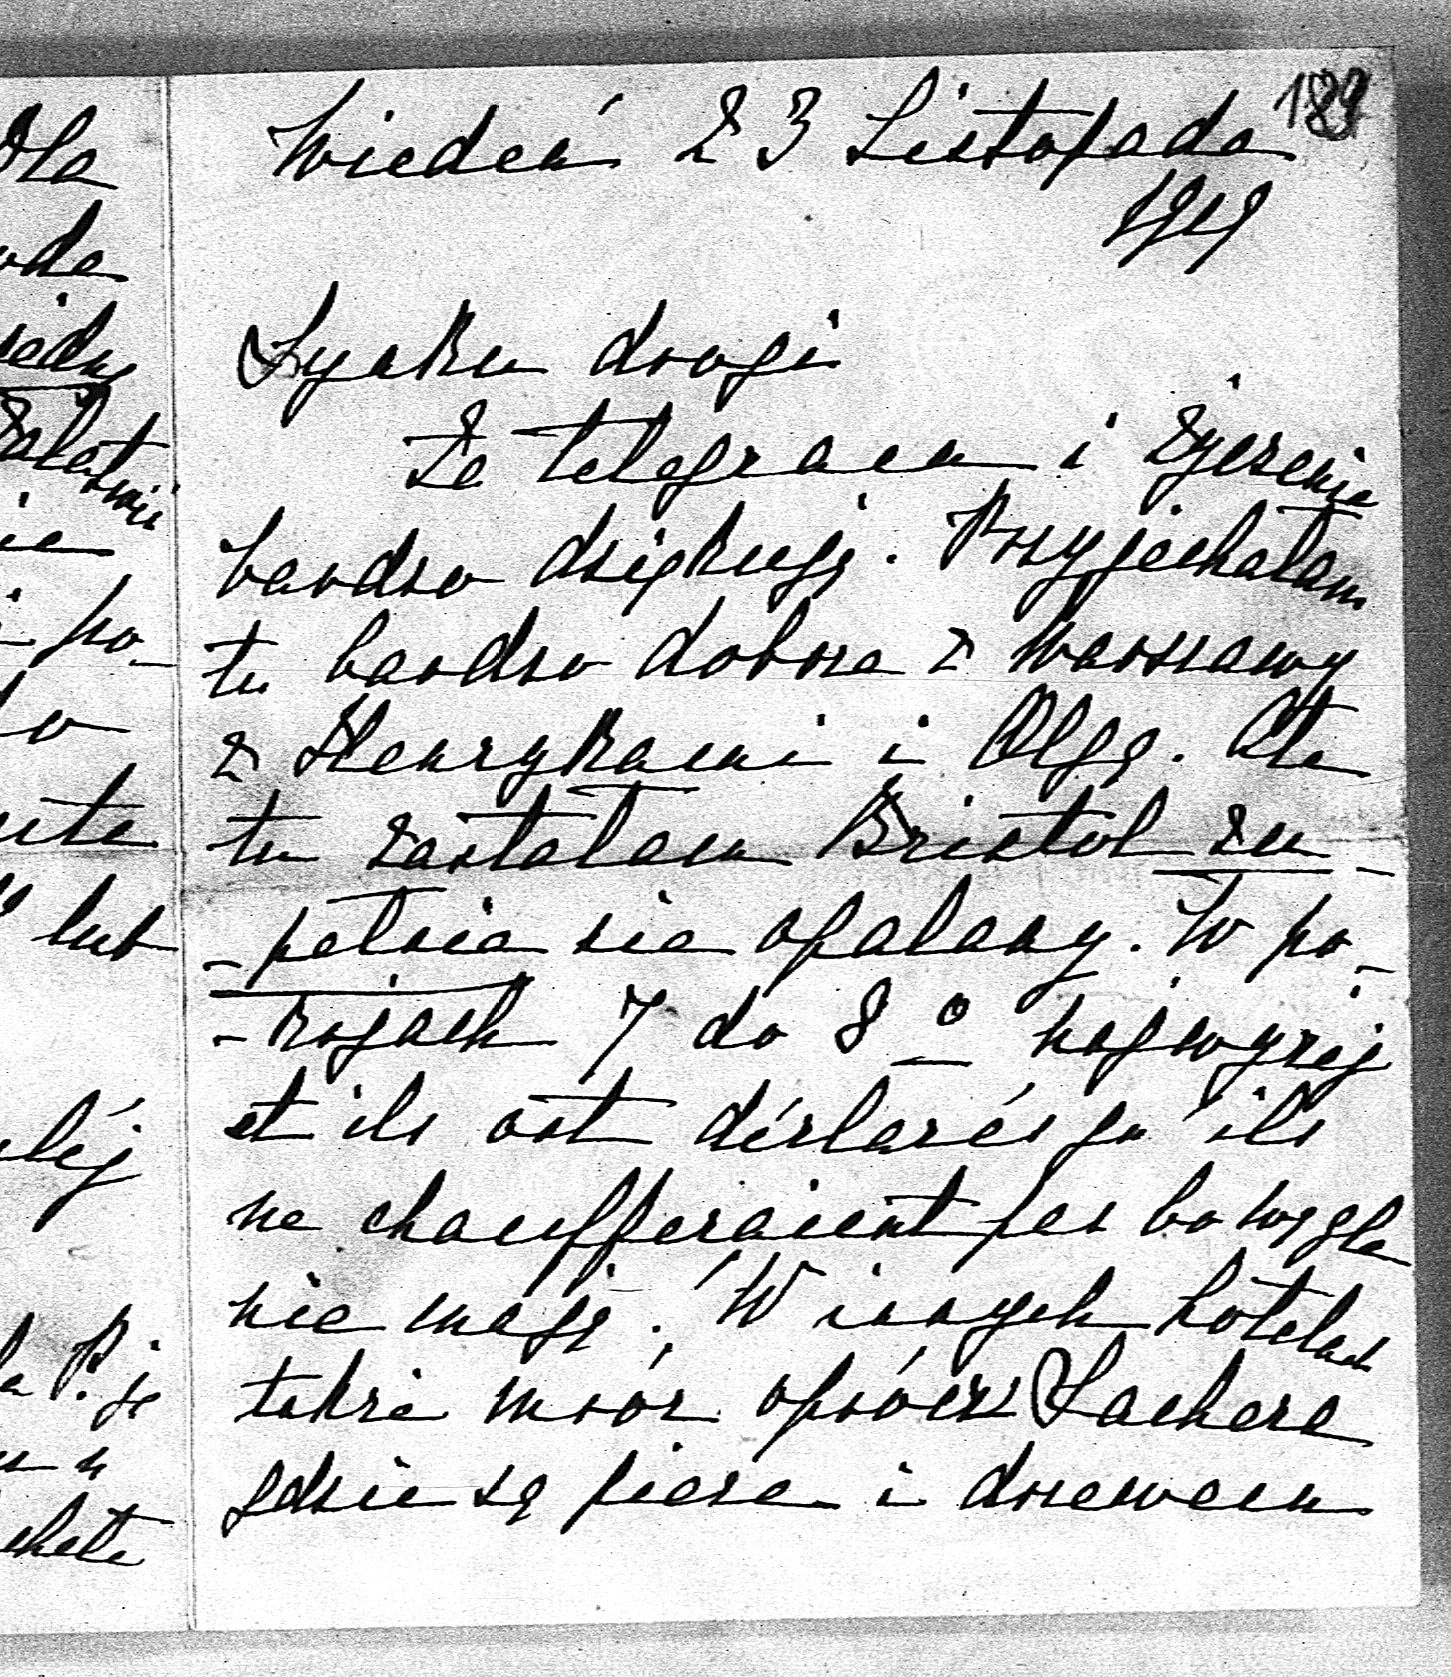 189
Wiedeń 23 Listopada
1919
Synku drogi
Za telegram i życzenia
bardzo dziękuję. Przyjechałam
tu bardzo dobrze z Warszawy
z Henrykami i Olgą. Ale
tu zastałam Bristol zu-
-pełnie nie opalany. W po-
-kojach 7 do 8° najwyżej
et ils ont déclaré qu'ils
ne chaufferaient pas bo węgla
nie mają. W innych hotelach
także mróz oprócz Sachera
gdzie są piece i drzewem
Dla
oda
jedny
załatwii
ie
i po-
o
lub
P. je